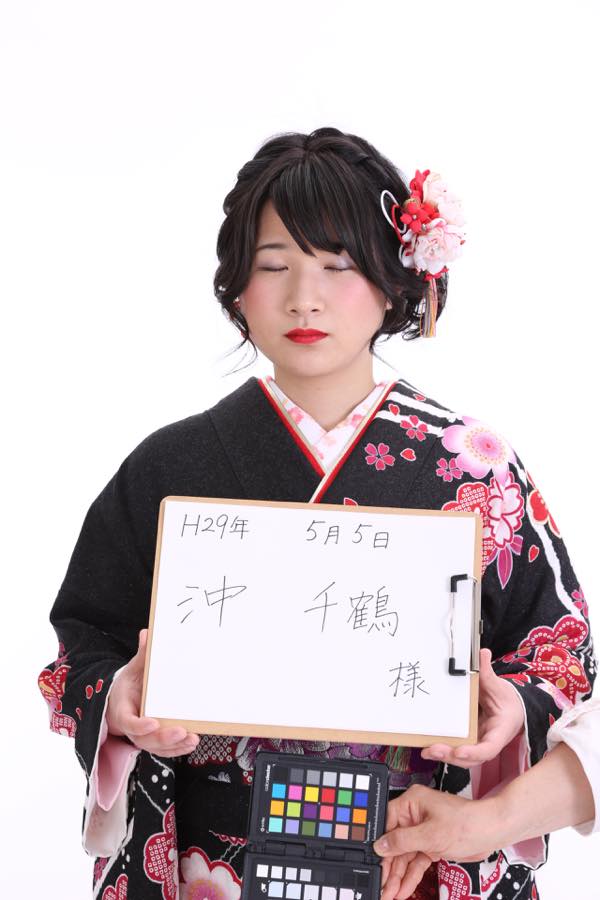 H29年 5月5日
沖 千鶴
様